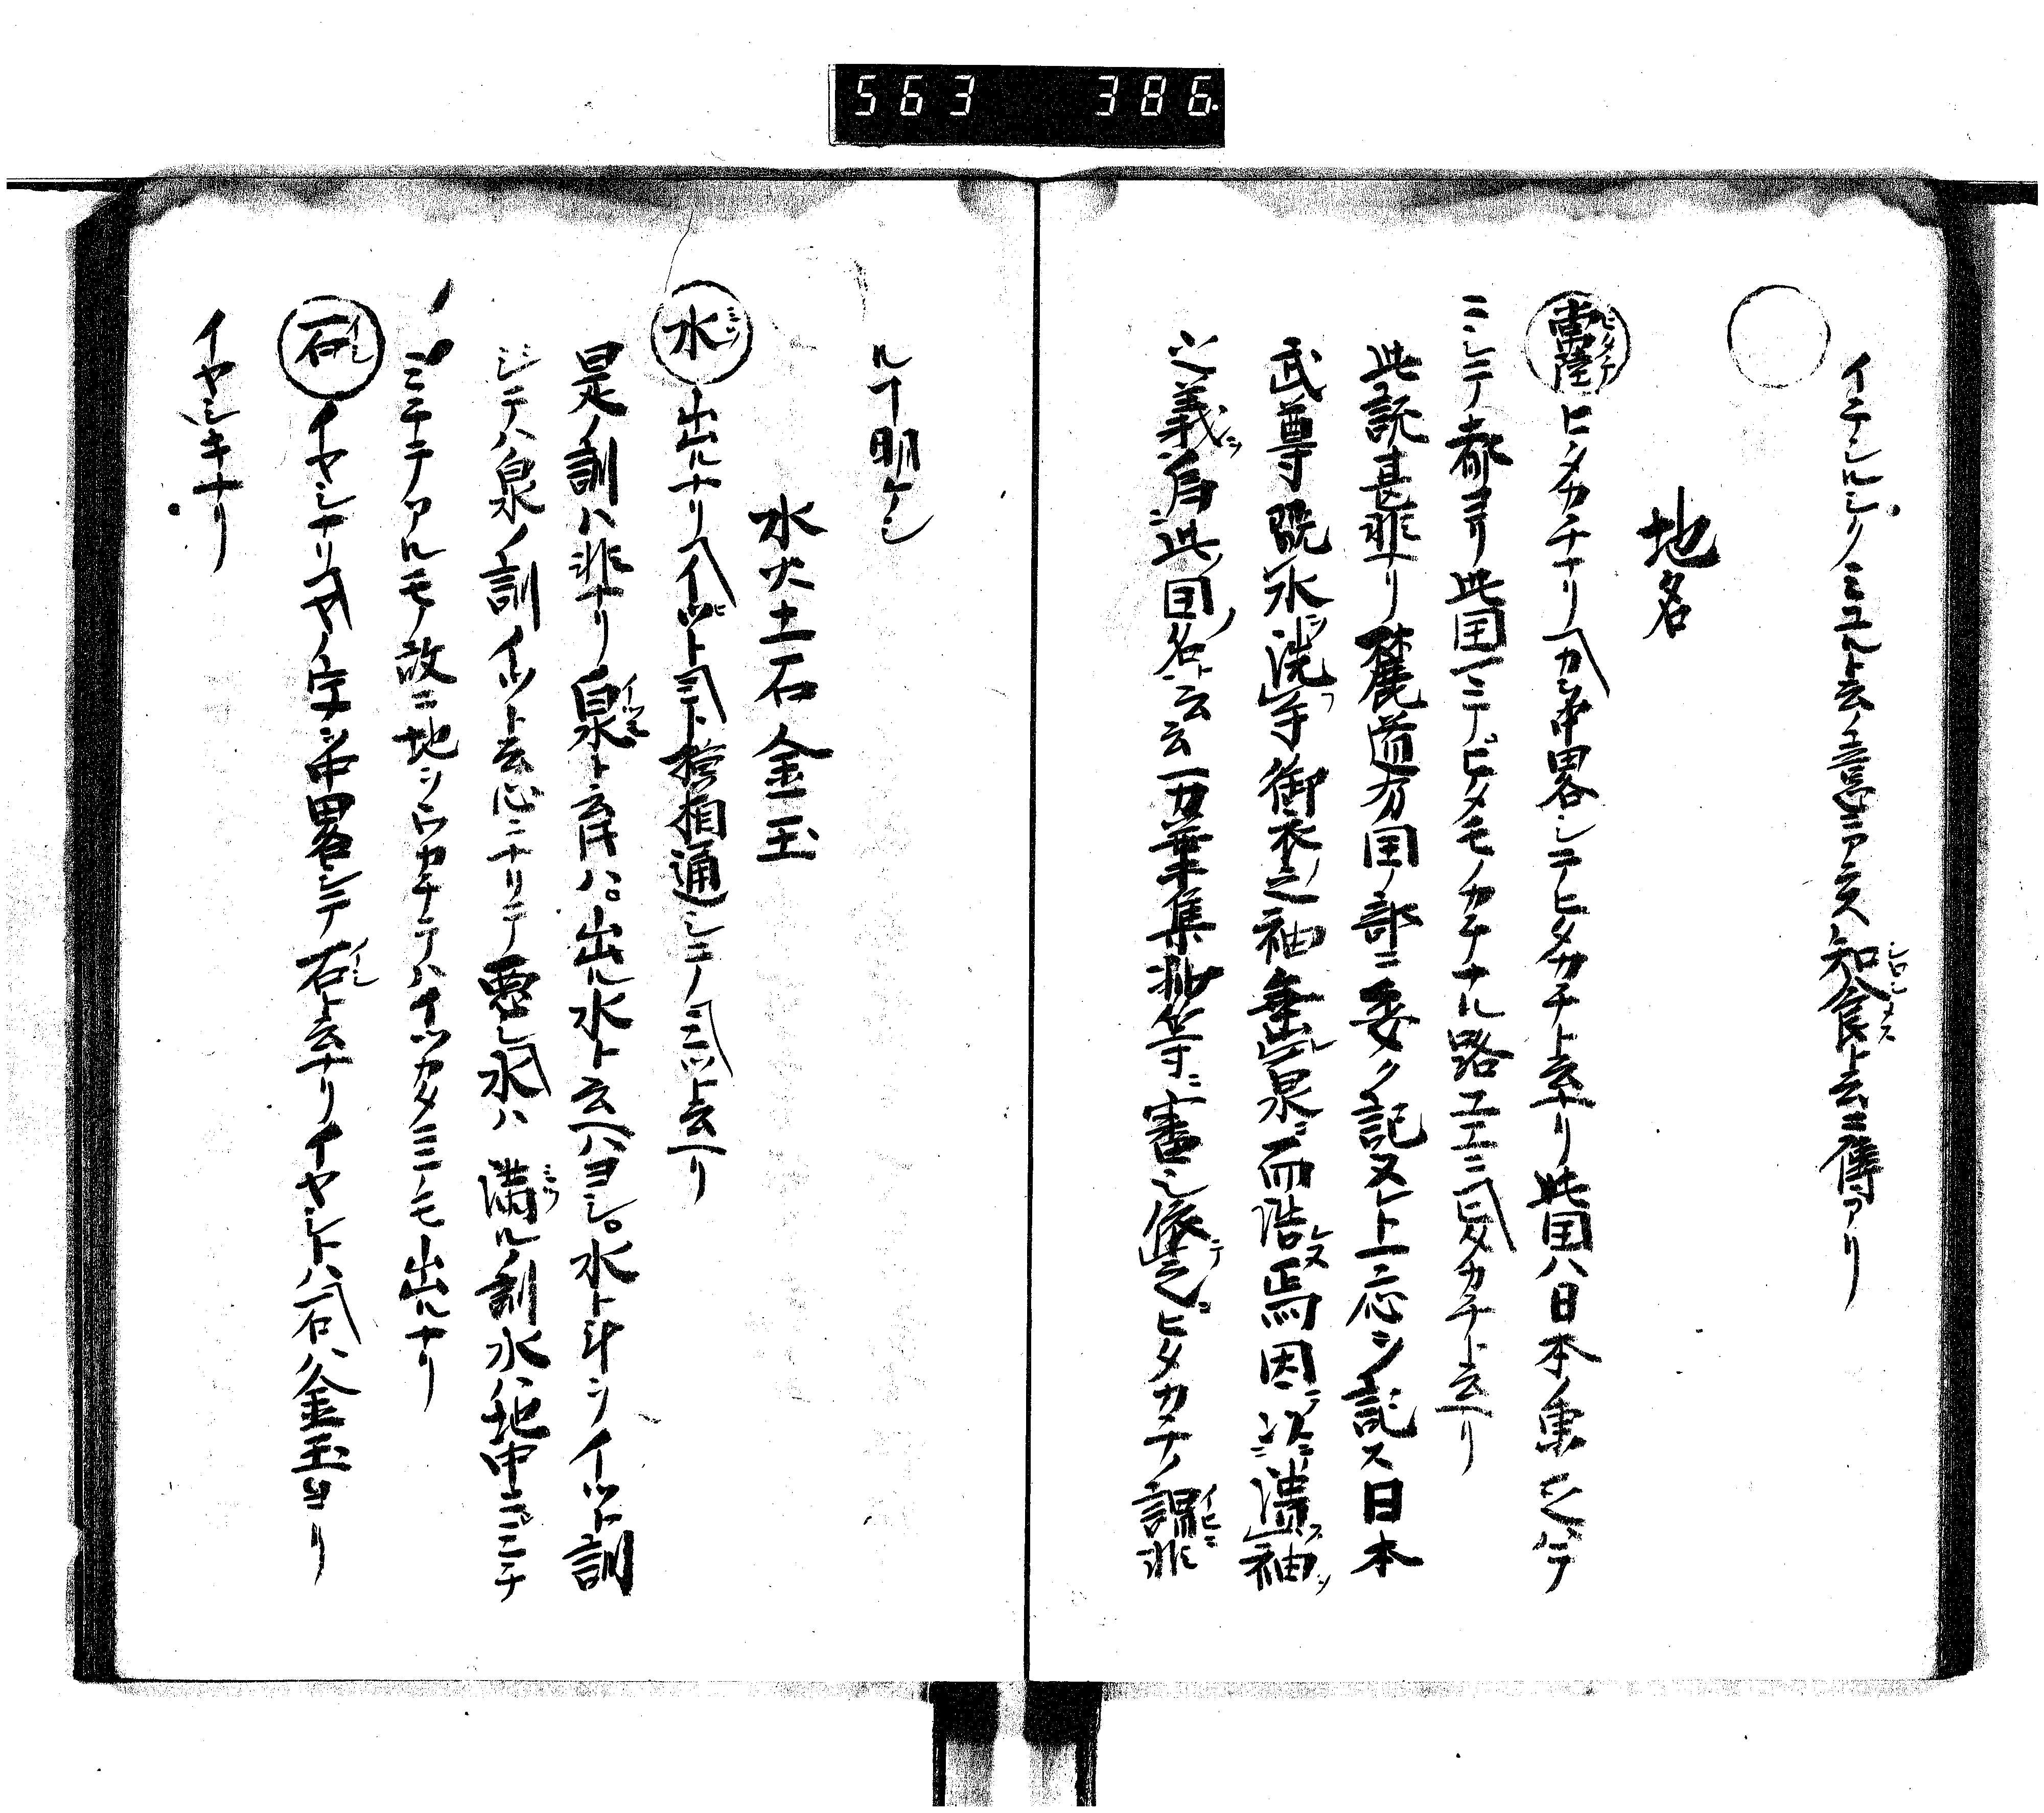 563 386
イチシルシノミユルト云ノ意ニアラス知食ト云ニ傳アリ
地名
常陸 ヒタカチナリカヲ中畧シテヒタチト云ナリ此国ハ日本ノ東
ニシテ都ヨリ此国マテヒタモノカチナル路ユエニヒタカチト云ナリ
此説甚非ナリ 麓道方国ノ部ニ委ク記ストモ一応ヲ記ス日本
武尊既水洗手御衣之袖垂泉而沾焉因以漬袖
之義為此国名ト云云万葉集抄等ニ審シ依之ヒタカチノ謂非
ルヿ明ケシ
水火土石金玉
水 出ルナリイツトミト横相通シテノミツト云ナリ
是ノ訓ハ非ナリ泉ト云ハ出ル水ト云ハヨシ水ト斗シイツト訓
シテハ泉ノ訓イツト云心ニナリテ悪シ水ハ満ルノ訓水ハ地中ニミチ
ミチテアルモノ故ニ地ヲウカチテハイツカタニテモ出ルナリ
石 イヤシナリヤノ字ヲ中畧シテ石ト云ナリイヤシトハ石ハ金玉ヨリ
イヤシキナリ